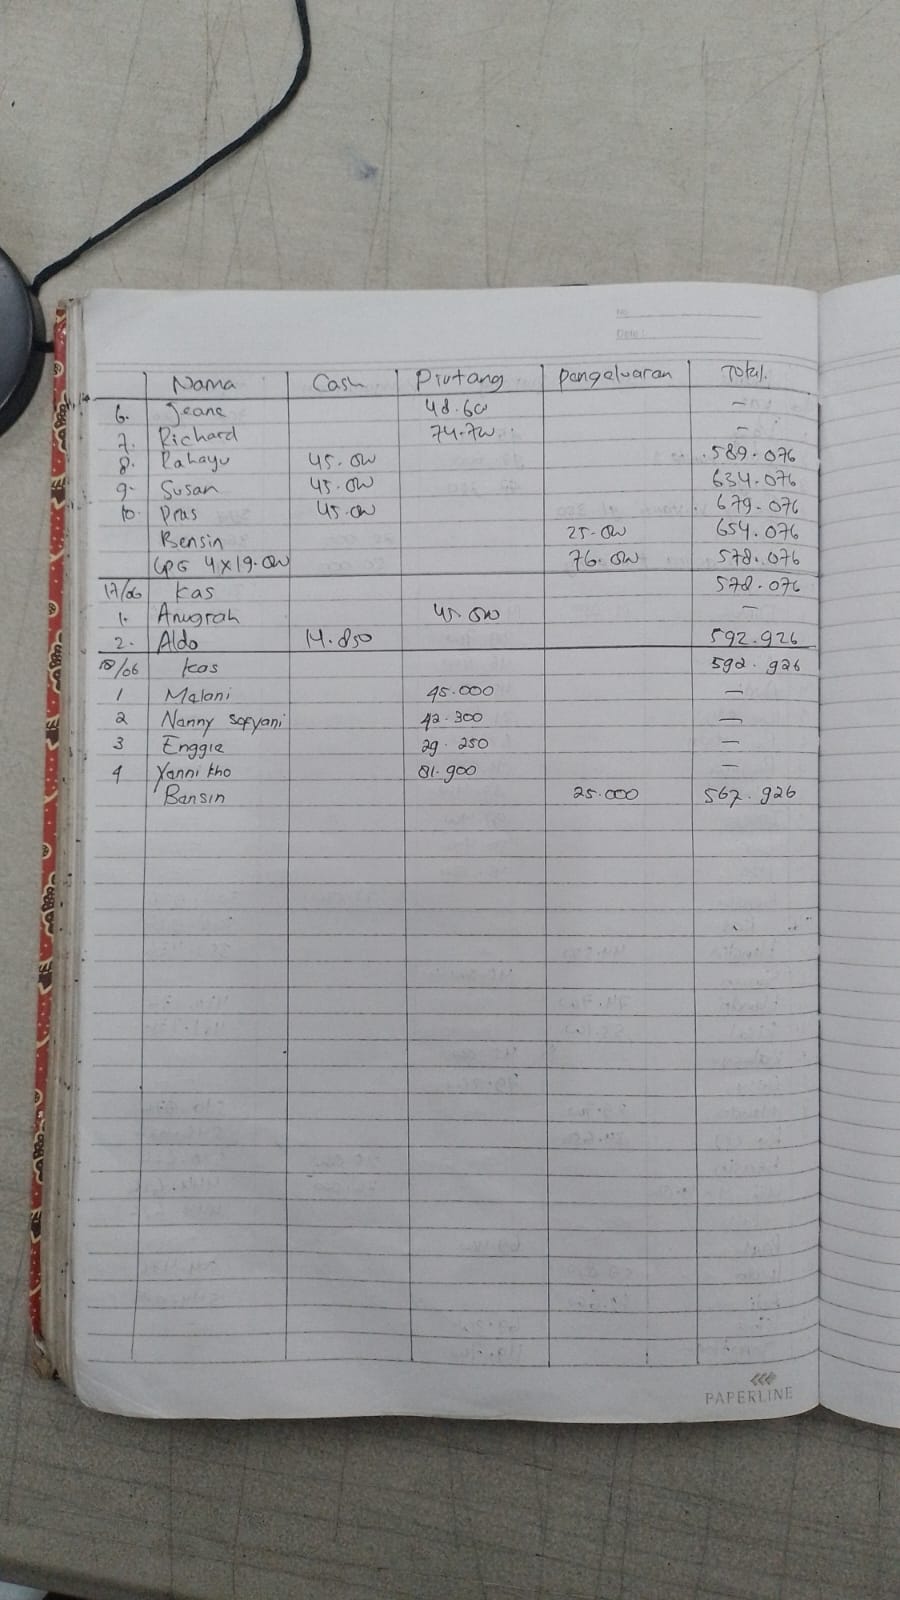 No
Date :
Nama Cash Piutang pengeluaran Total.
6. Jeane 48.600 -
7. Richard 74.700 -
8. Rahayu 45.000 589.076
9. Susan 45.000 634.076
10. Pras 45.000 679.076
Bensin 25.000 654.076
LPG 4x19.000 76.000 578.076
17/06 kas 578.076
1. Anugrah 45.000 -
2. Aldo 14.850 592.926
18/06 kas 592.926
1 Melani 45.000 -
2 Nanny Sofyani 42.300 -
3 Enggie 29.250 -
4 Yanni kho 81.900 -
Bensin 25.000 567.926
PAPERLINE